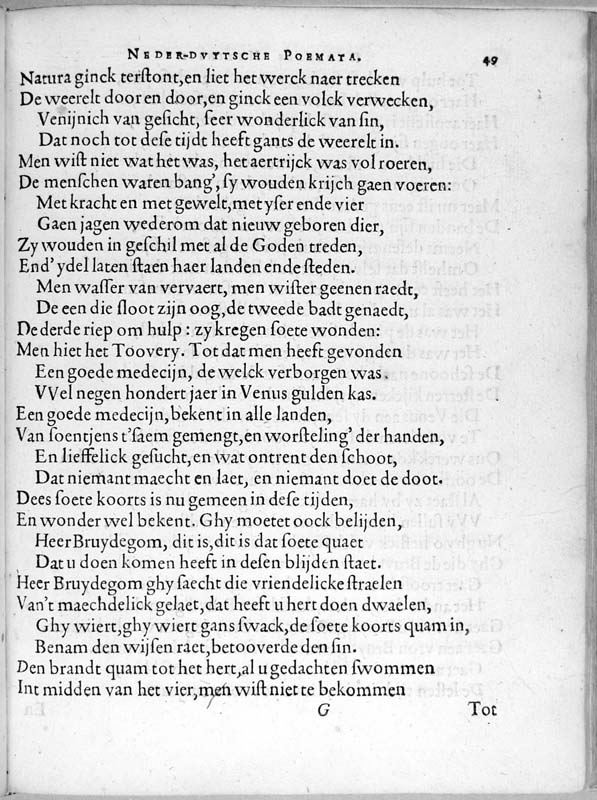 NEDER-DVYTSCHE POEMATA. 49
Natura ginck terſtont, en liet het werck naer trecken
De weerelt door en door, en ginck een volck verwecken,
Venijnich van geſicht, ſeer wonderlick van ſin,
Dat noch tot deſe tijdt heeft gants de weerelt in.
Men wiſt niet wat het was, het aertrijck was vol roeren,
De menſchen waren bang', ſy wouden krijch gaen voeren:
Met kracht en met gewelt, met yſer ende vier
Gaen jagen wederom dat nieuw geboren dier,
Zy wouden in geſchil met al de Goden treden,
End' ydel laten ſtaen haer landen ende ſteden.
Men waſſer van vervaert, men wiſter geenen raedt,
De een die ſloot zijn oog, de tweede badt genaedt,
De derde riep om hulp: zy kregen ſoete wonden:
Men hiet het Toovery. Tot dat men heeft gevonden
Een goede medecijn, de welck verborgen was
VVel negen hondert jaer in Venus gulden kas.
Een goede medecijn, bekent in alle landen,
Van ſoentjens t'ſaem gemengt, en worſteling' der handen,
En lieffelick geſucht, en wat ontrent den ſchoot,
Dat niemant maecht en laet, en niemant doet de doot.
Dees ſoete koorts is nu gemeen in deſe tijden,
En wonder wel bekent. Ghy moetet oock belijden,
Heer Bruydegom, dit is, dit is dat ſoete quaet
Dat u doen komen heeft in deſen blijden ſtaet.
Heer Bruydegom ghy ſaecht die vriendelicke ſtraelen
Van't maechdelick gelaet, dat heeft u hert doen dwaelen,
Ghy wiert, ghy wiert gans ſwack, de ſoete koorts quam in,
Benam den wijſen raet, betooverde den ſin.
Den brandt quam tot het hert, al u gedachten ſwommen
Int midden van het vier, men wiſt niet te bekommen
G Tot